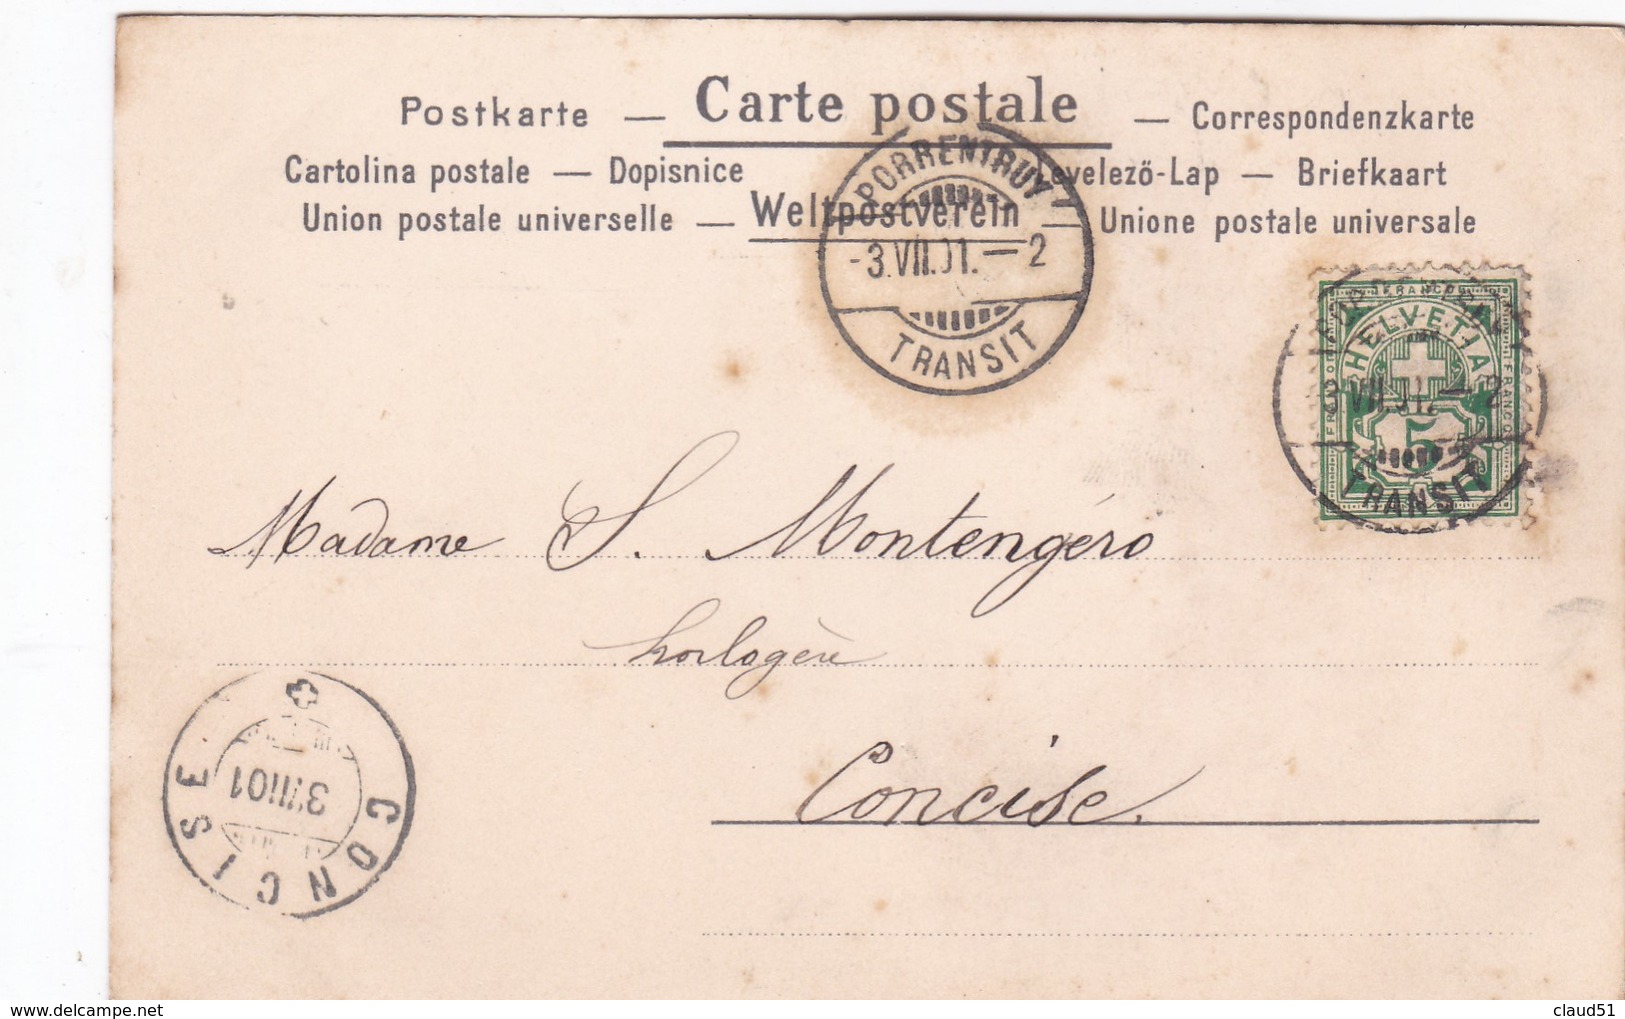 Postkarte — Carte postale — Correspondenzkarte
Cartolina postale — Dopisnice evelezö-Lap — Briefkaart
Union postale universelle — Weltpostverein — Unione postale universale
PORRENTRUY
-3.VII.01.—2
TRANSIT
FRANCO
HELVETIA
FRANCO FRANCO
3 VII.01.—2
5
TRANSIT
Madame S. Montengéro
horlogère
Concise.
CONCISE
3 VII 01
delcampe.net
claud51